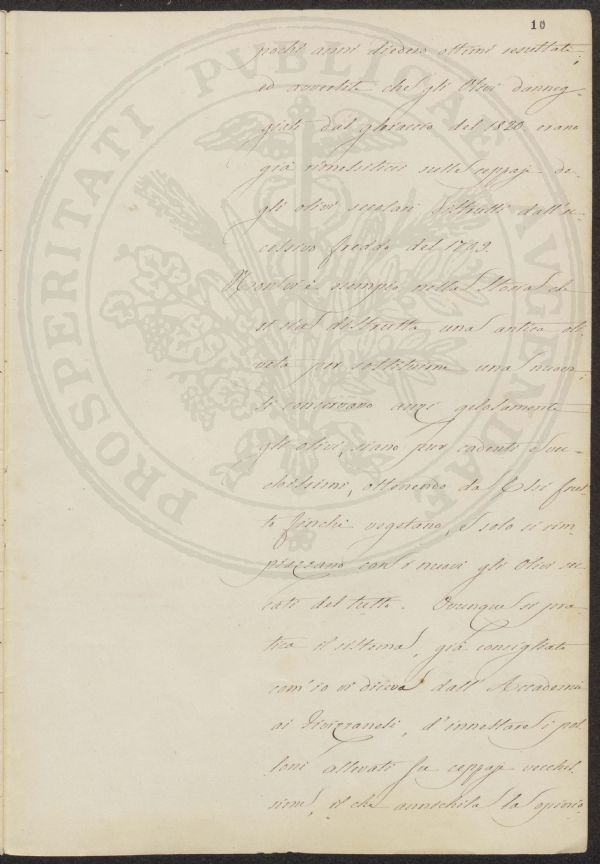 10
pochi anni diedero ottimi resultati;
ed avvertite che gli Olivi danneg-
giati dal ghiaccio del 1820. erano
già rimessiticci sulle ceppaje de-
gli olivi secolari distrutti dall'ec-
cessivo freddo del 1709.
Non vi è esempio nella Storia che
si sia distrutta una antica oli-
veta per sostituirne una nuova.
Si conservano anzi gelosamente
gli olivi, siano pur cadenti e vec-
chissimi, ottenendo da Essi frut-
to finchè vegetano, e solo si rim-
piazzano con i nuovi gli Olivi sec-
cati del tutto. Ovunque si pra-
tica il sistema, già consigliato
com'io vi diceva dall'Accademia
ai Pesizzaneti, d'innestare i pol-
loni allevati su ceppaje vecchis-
sime, il che annichila la opinio-
PROSPERITATI PVBLICAE AVGENDAE